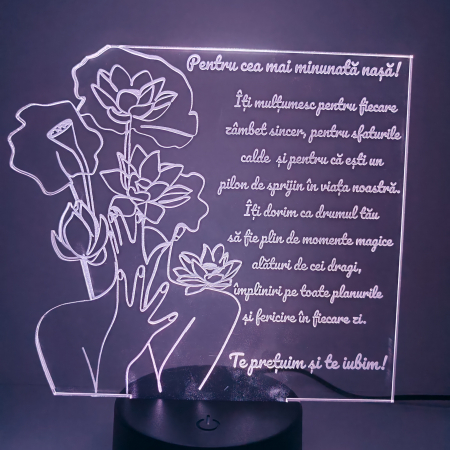 Pentru cea mai minunată nașă!
Îți mulțumesc pentru fiecare
zâmbet sincer, pentru sfaturile
calde și pentru că ești un
pilon de sprijin în viața noastră.
Îți dorim ca drumul tău
să fie plin de momente magice
alături de cei dragi,
împliniri pe toate planurile
și fericire în fiecare zi.
Te prețuim și te iubim!